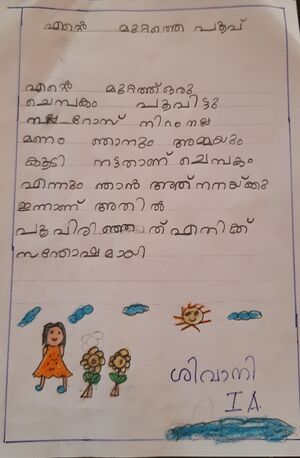 എന്റെ മുറ്റത്തെ പൂവ്
എന്റെ മുറ്റത്ത് ഒരു
ചെമ്പകം പൂവിട്ടു
നല്ല റോസ് നിറം നല്ല
മണം ഞാനും അമ്മയും
കൂടി നട്ടതാണ് ചെമ്പകം
എന്നും ഞാൻ അത് നനയ്ക്കു
ഇന്നാണ് അതിൽ
പൂവിരിഞ്ഞത് എനിക്ക്
സന്തോഷമായി
ശിവാനി
I A